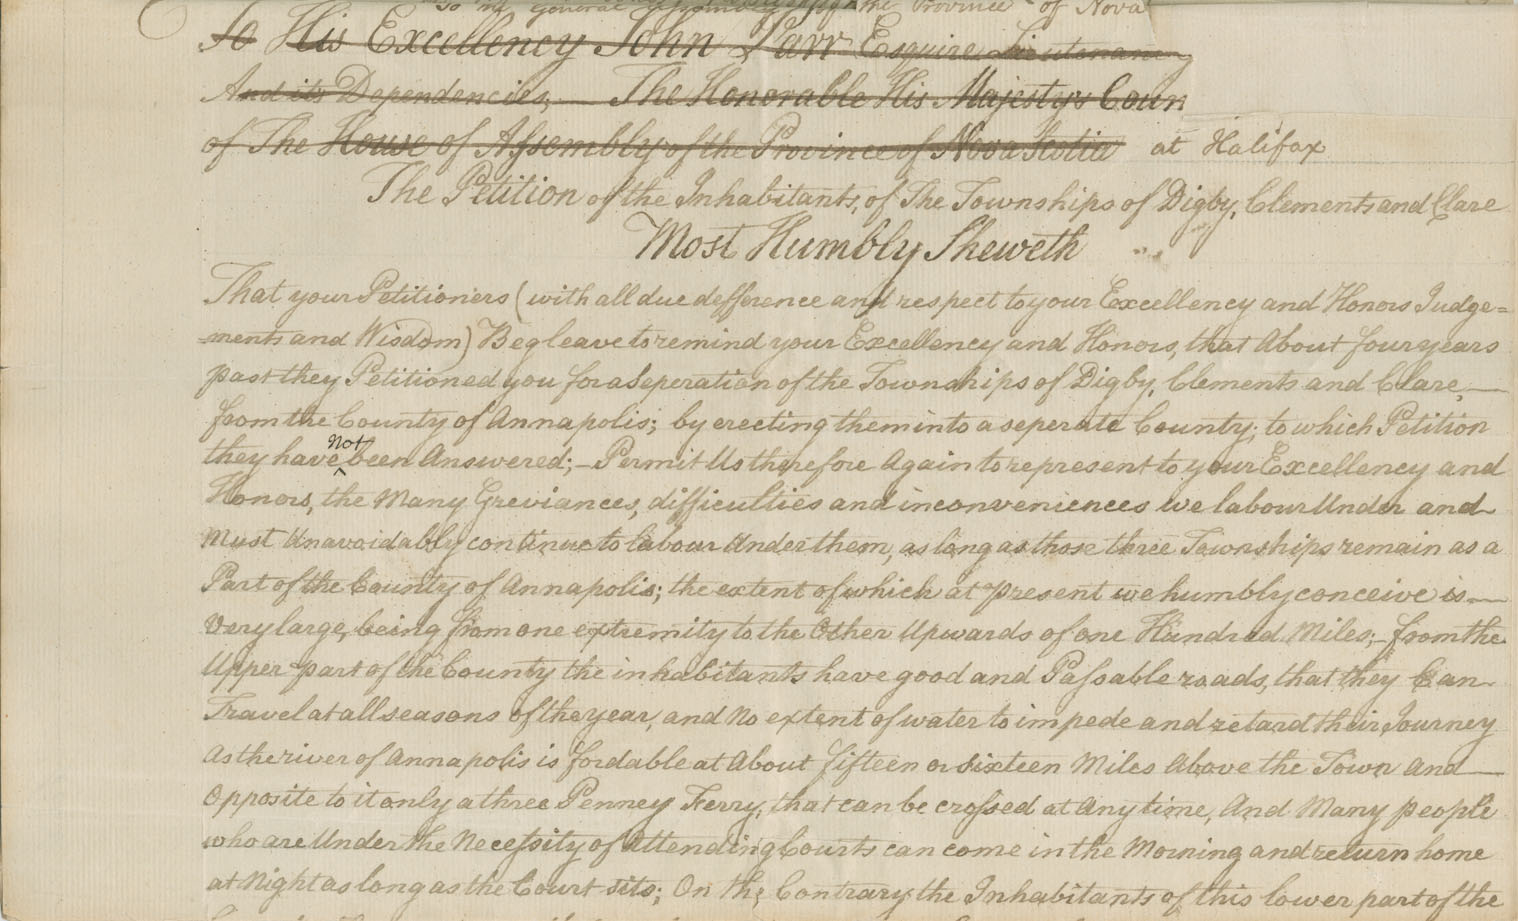 To the general Assembly of the Province of Nova
To His Excellency John Parr Esquire Lieutenancy
And its Dependencies, — The Honorable His Majestys Coun
of The House of Assembly of the Province of Nova Scotia at Halifax
The Petition of the Inhabitants, of The Townships of Digby, Clements and Clare
Most Humbly Sheweth
That your Petitioners (with all due defference and respect to your Excellency and Honors Judge=
=ments and Wisdom) Beg leave to remind your Excellency and Honors, that About four years
past they Petitioned you for a Seperation of the Townships of Digby, Clements and Clare, —
from the County of Annapolis; by erecting them into a seperate County; to which Petition
they have Not been Answered; – Permit Us therefore Again to represent to your Excellency and
Honors, the Many Greviances, difficulties and inconveniences we labour Under and
Must Unavoidably continue to labour Under them, as long as those three Townships remain as a
Part of the County of Annapolis; the extent of which at present we humbly conceive is —
Very large, being from one extremity to the Other Upwards of one Hundred Miles; – from the
Upper part of the County the inhabitants have good and Passable roads, that they Can
Travel at all seasons of the year, and No extent of water to impede and retard their Journey
As the river of Annapolis is fordable at About fifteen or Sixteen Miles Above the Town And —
Opposite to it only a three Penney Ferry, that can be crossed at Any time, And Many people
who are Under the Necessity of Attending Courts can come in the Morning and return home
at Night as long as the Court sits; On the Contrary the Inhabitants of this lower part of the